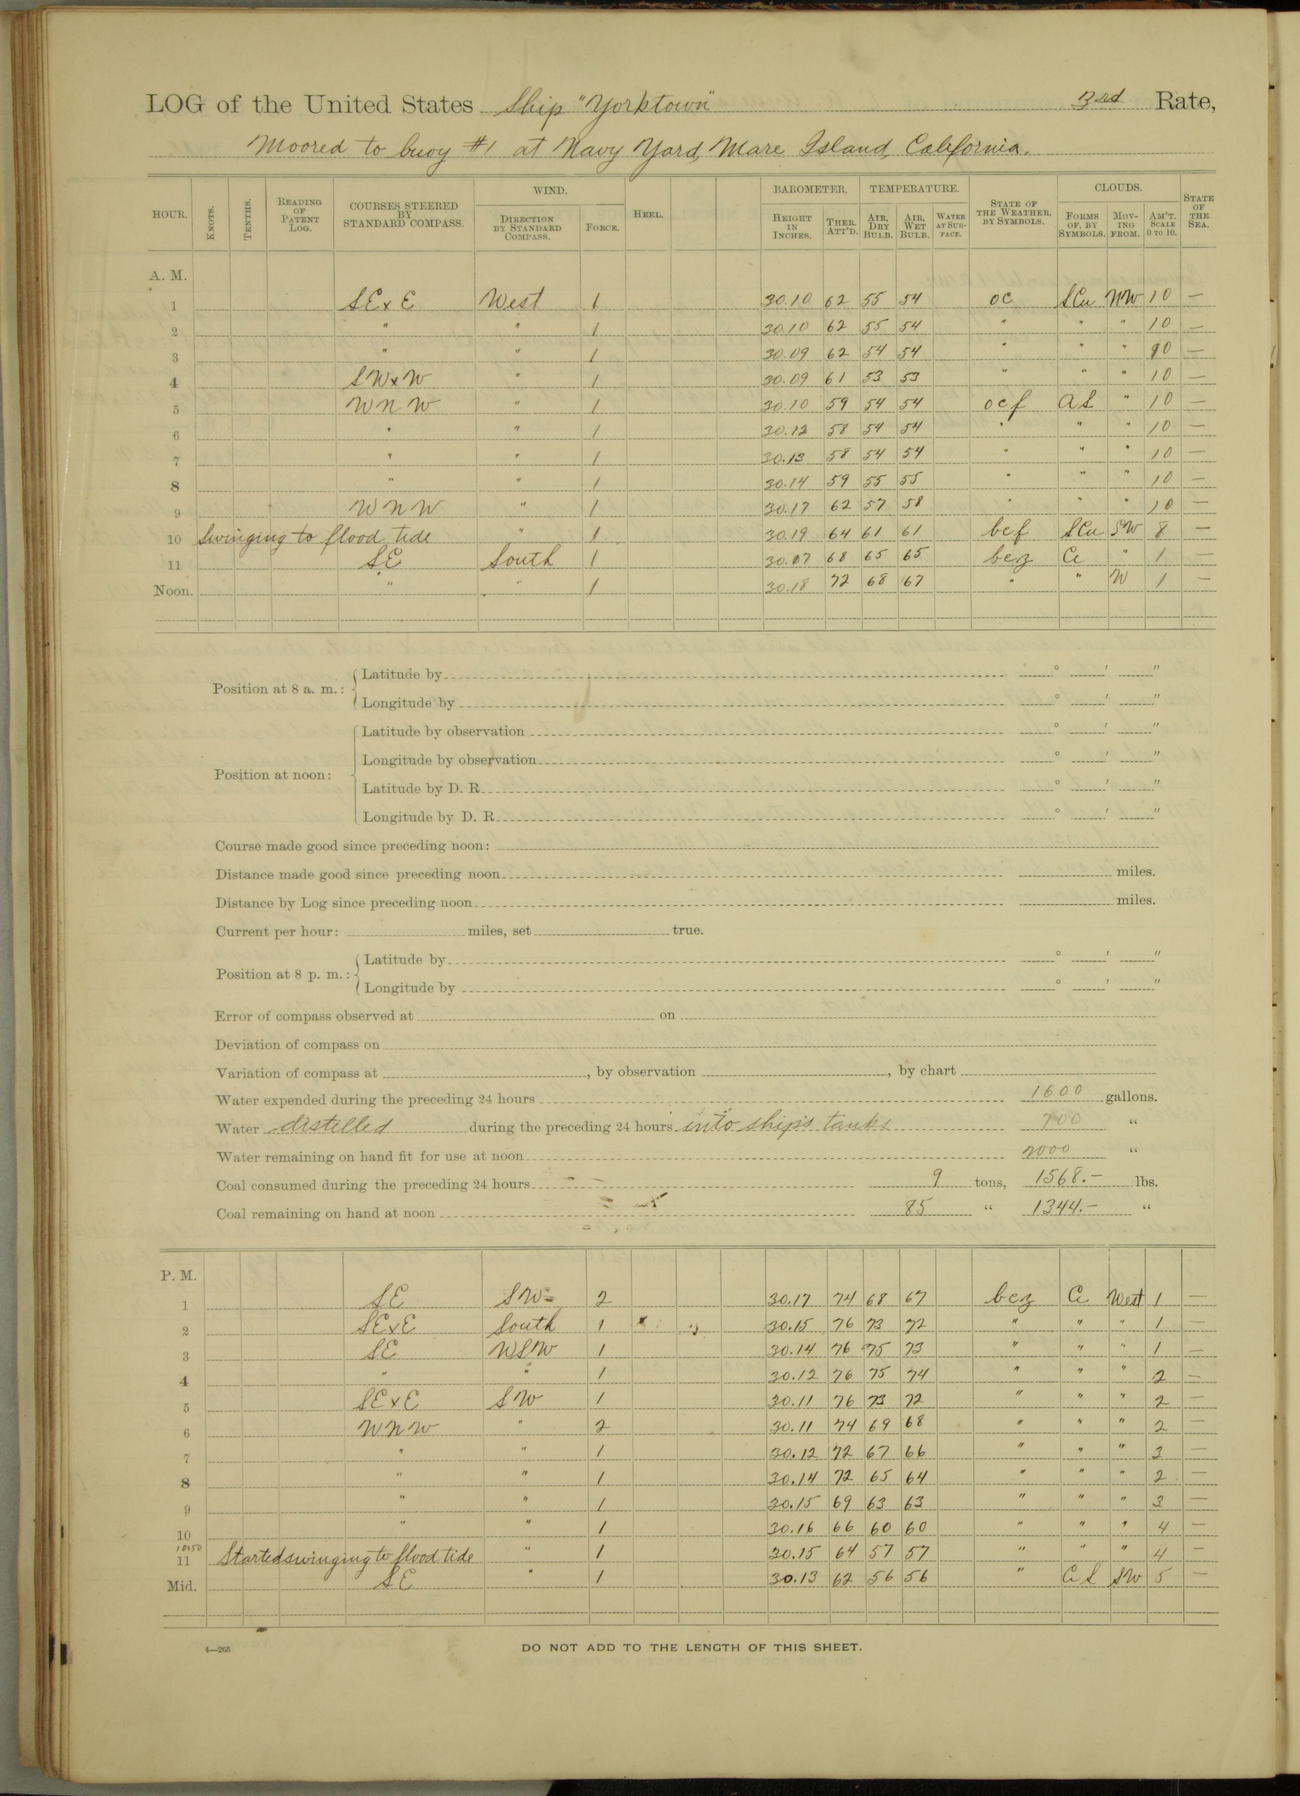 LOG of the United States Ship "Yorktown" 3rd Rate,
Moored to buoy #1 at Navy Yard, Mare Island, California.
HOUR. KNOTS. TENTHS. READING OF PATENT LOG. COURSES STEERED BY STANDARD COMPASS. WIND. DIRECTION BY STANDARD COMPASS. FORCE. HEEL. BAROMETER. HEIGHT IN INCHES. THER. ATT'D. TEMPERATURE. AIR, DRY BULB. AIR, WET BULB. WATER AT SURFACE. STATE OF THE WEATHER, BY SYMBOLS. CLOUDS. FORMS OF, BY SYMBOLS. MOVING FROM. AM'T. SCALE 0 TO 10. STATE OF THE SEA.
A. M.
1 SExE West 1 30.10 62 55 54 oc SCu NW 10 —
2 " " 1 30.10 62 55 54 " " " 10 —
3 " " 1 30.09 62 54 54 " " " 10 —
4 SWxW " 1 30.09 61 53 53 " " " 10 —
5 WNW " 1 30.10 59 54 54 ocf AS " 10 —
6 " " 1 30.12 58 54 54 " " " 10 —
7 " " 1 30.13 58 54 54 " " " 10 —
8 " " 1 30.14 59 55 55 " " " 10 —
9 WNW " 1 30.17 62 57 58 " " " 10 —
10 Swinging to flood tide " 1 30.19 64 61 61 bcf SCu SW 8 —
11 SE South 1 30.17 68 65 65 bcz Ci " 1 —
Noon. " " 1 30.18 72 68 67 " " W 1 —
Position at 8 a. m.: Latitude by ° ' "
Longitude by ° ' "
Position at noon: Latitude by observation ° ' "
Longitude by observation ° ' "
Latitude by D. R. ° ' "
Longitude by D. R. ° ' "
Course made good since preceding noon:
Distance made good since preceding noon miles.
Distance by Log since preceding noon miles.
Current per hour: miles, set true.
Position at 8 p. m.: Latitude by ° ' "
Longitude by ° ' "
Error of compass observed at on
Deviation of compass on
Variation of compass at , by observation , by chart
Water expended during the preceding 24 hours 1600 gallons.
Water distilled during the preceding 24 hours into ship's tanks 700 "
Water remaining on hand fit for use at noon 2000 "
Coal consumed during the preceding 24 hours 9 tons, 1568.— lbs.
Coal remaining on hand at noon 85 " 1344.— "
P. M.
1 SE SW 2 30.17 74 68 67 bcz Ci West 1 —
2 SExE South 1 30.15 76 73 72 " " " 1 —
3 SE WSW 1 30.14 76 75 73 " " " 1 —
4 " " 1 30.12 76 75 74 " " " 2 —
5 SExE SW 1 30.11 76 73 72 " " " 2 —
6 WNW " 2 30.11 74 69 68 " " " 2 —
7 " " 1 30.12 72 67 66 " " " 3 —
8 " " 1 30.14 72 65 64 " " " 2 —
9 " " 1 30.15 69 63 63 " " " 3 —
10 " " 1 30.16 66 60 60 " " " 4 —
10:50
11 Started swinging to flood tide " 1 30.15 64 57 57 " " " 4 —
Mid. SE " 1 30.13 62 56 56 " Ci S SW 5 —
4—265 DO NOT ADD TO THE LENGTH OF THIS SHEET.